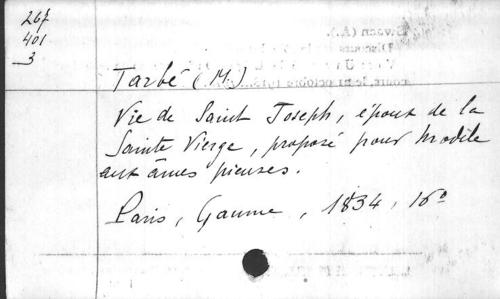 267
401
3
Tarbé (M.)
Vie de Saint Joseph, époux de la
Sainte Vierge, proposé pour modèle
aux âmes pieuses.
Paris, Gaume, 1834, 16º